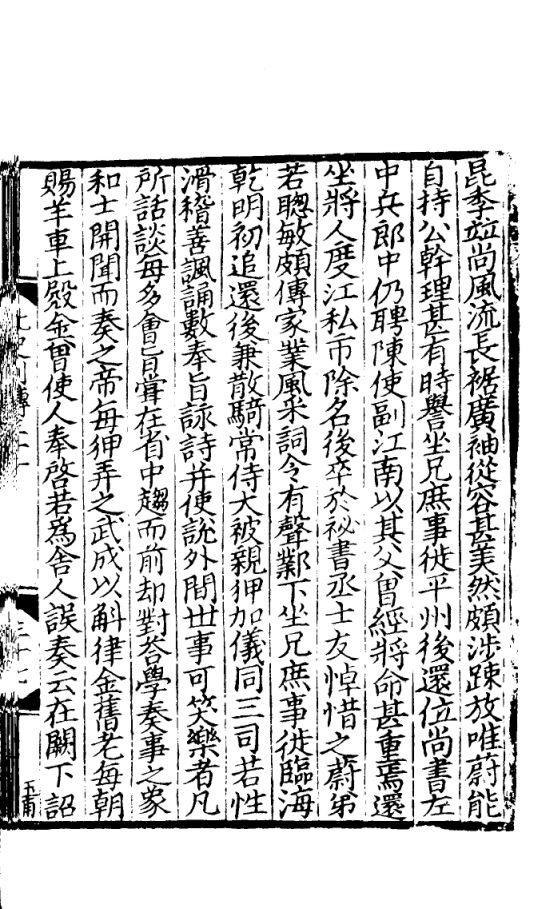 昆季竝尚風流長裾廣袖從容甚美然頗涉踈放唯蔚能
自持公幹理甚有時譽坐兄庶事徙平州後還位尚書左
中兵郎中仍聘陳使副江南以其父曾經將命甚重焉還
坐將人度江私市除名後卒於祕書丞士友悼惜之蔚弟
若聰敏頗傳家業風采詞令有聲鄴下坐兄庶事徙臨海
乾明初追還後兼散騎常侍大被親狎加儀同三司若性
滑稽善諷誦數奉旨詠詩并使說外間世事可笑樂者凡
所話談每多會旨甞在省中趨而前却對荅學奏事之象
和士開聞而奏之帝每狎弄之武成以斛律金舊老每朝
賜羊車上殿金曾使人奉啓若爲舎人誤奏云在闕下詔